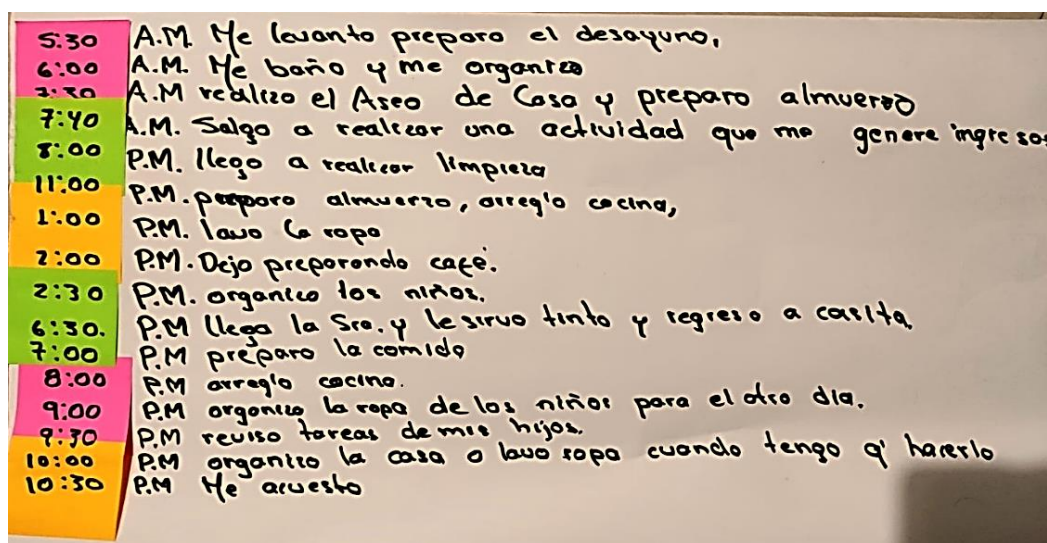 5:30 A.M. Me levanto preparo el desayuno,
6:00 A.M. Me baño y me organizo
7:30 A.M realizo el Aseo de Casa y preparo almuerzo
7:40 A.M. Salgo a realizar una actividad que me genere ingresos
8:00 P.M. llego a realizar limpieza
11:00 P.M. preparo almuerzo, arreglo cocina,
1:00 P.M. lavo la ropa
2:00 P.M. Dejo preparando café.
2:30 P.M. organizo los niños.
6:30. P.M llega la Sra. y le sirvo tinto y regreso a casita.
7:00 P.M preparo la comida
8:00 P.M arreglo cocina.
9:00 P.M organizo la ropa de los niños para el otro día.
9:30 P.M reviso tareas de mis hijos.
10:00 P.M organizo la casa o lavo ropa cuando tengo q' hacerlo
10:30 P.M Me acuesto